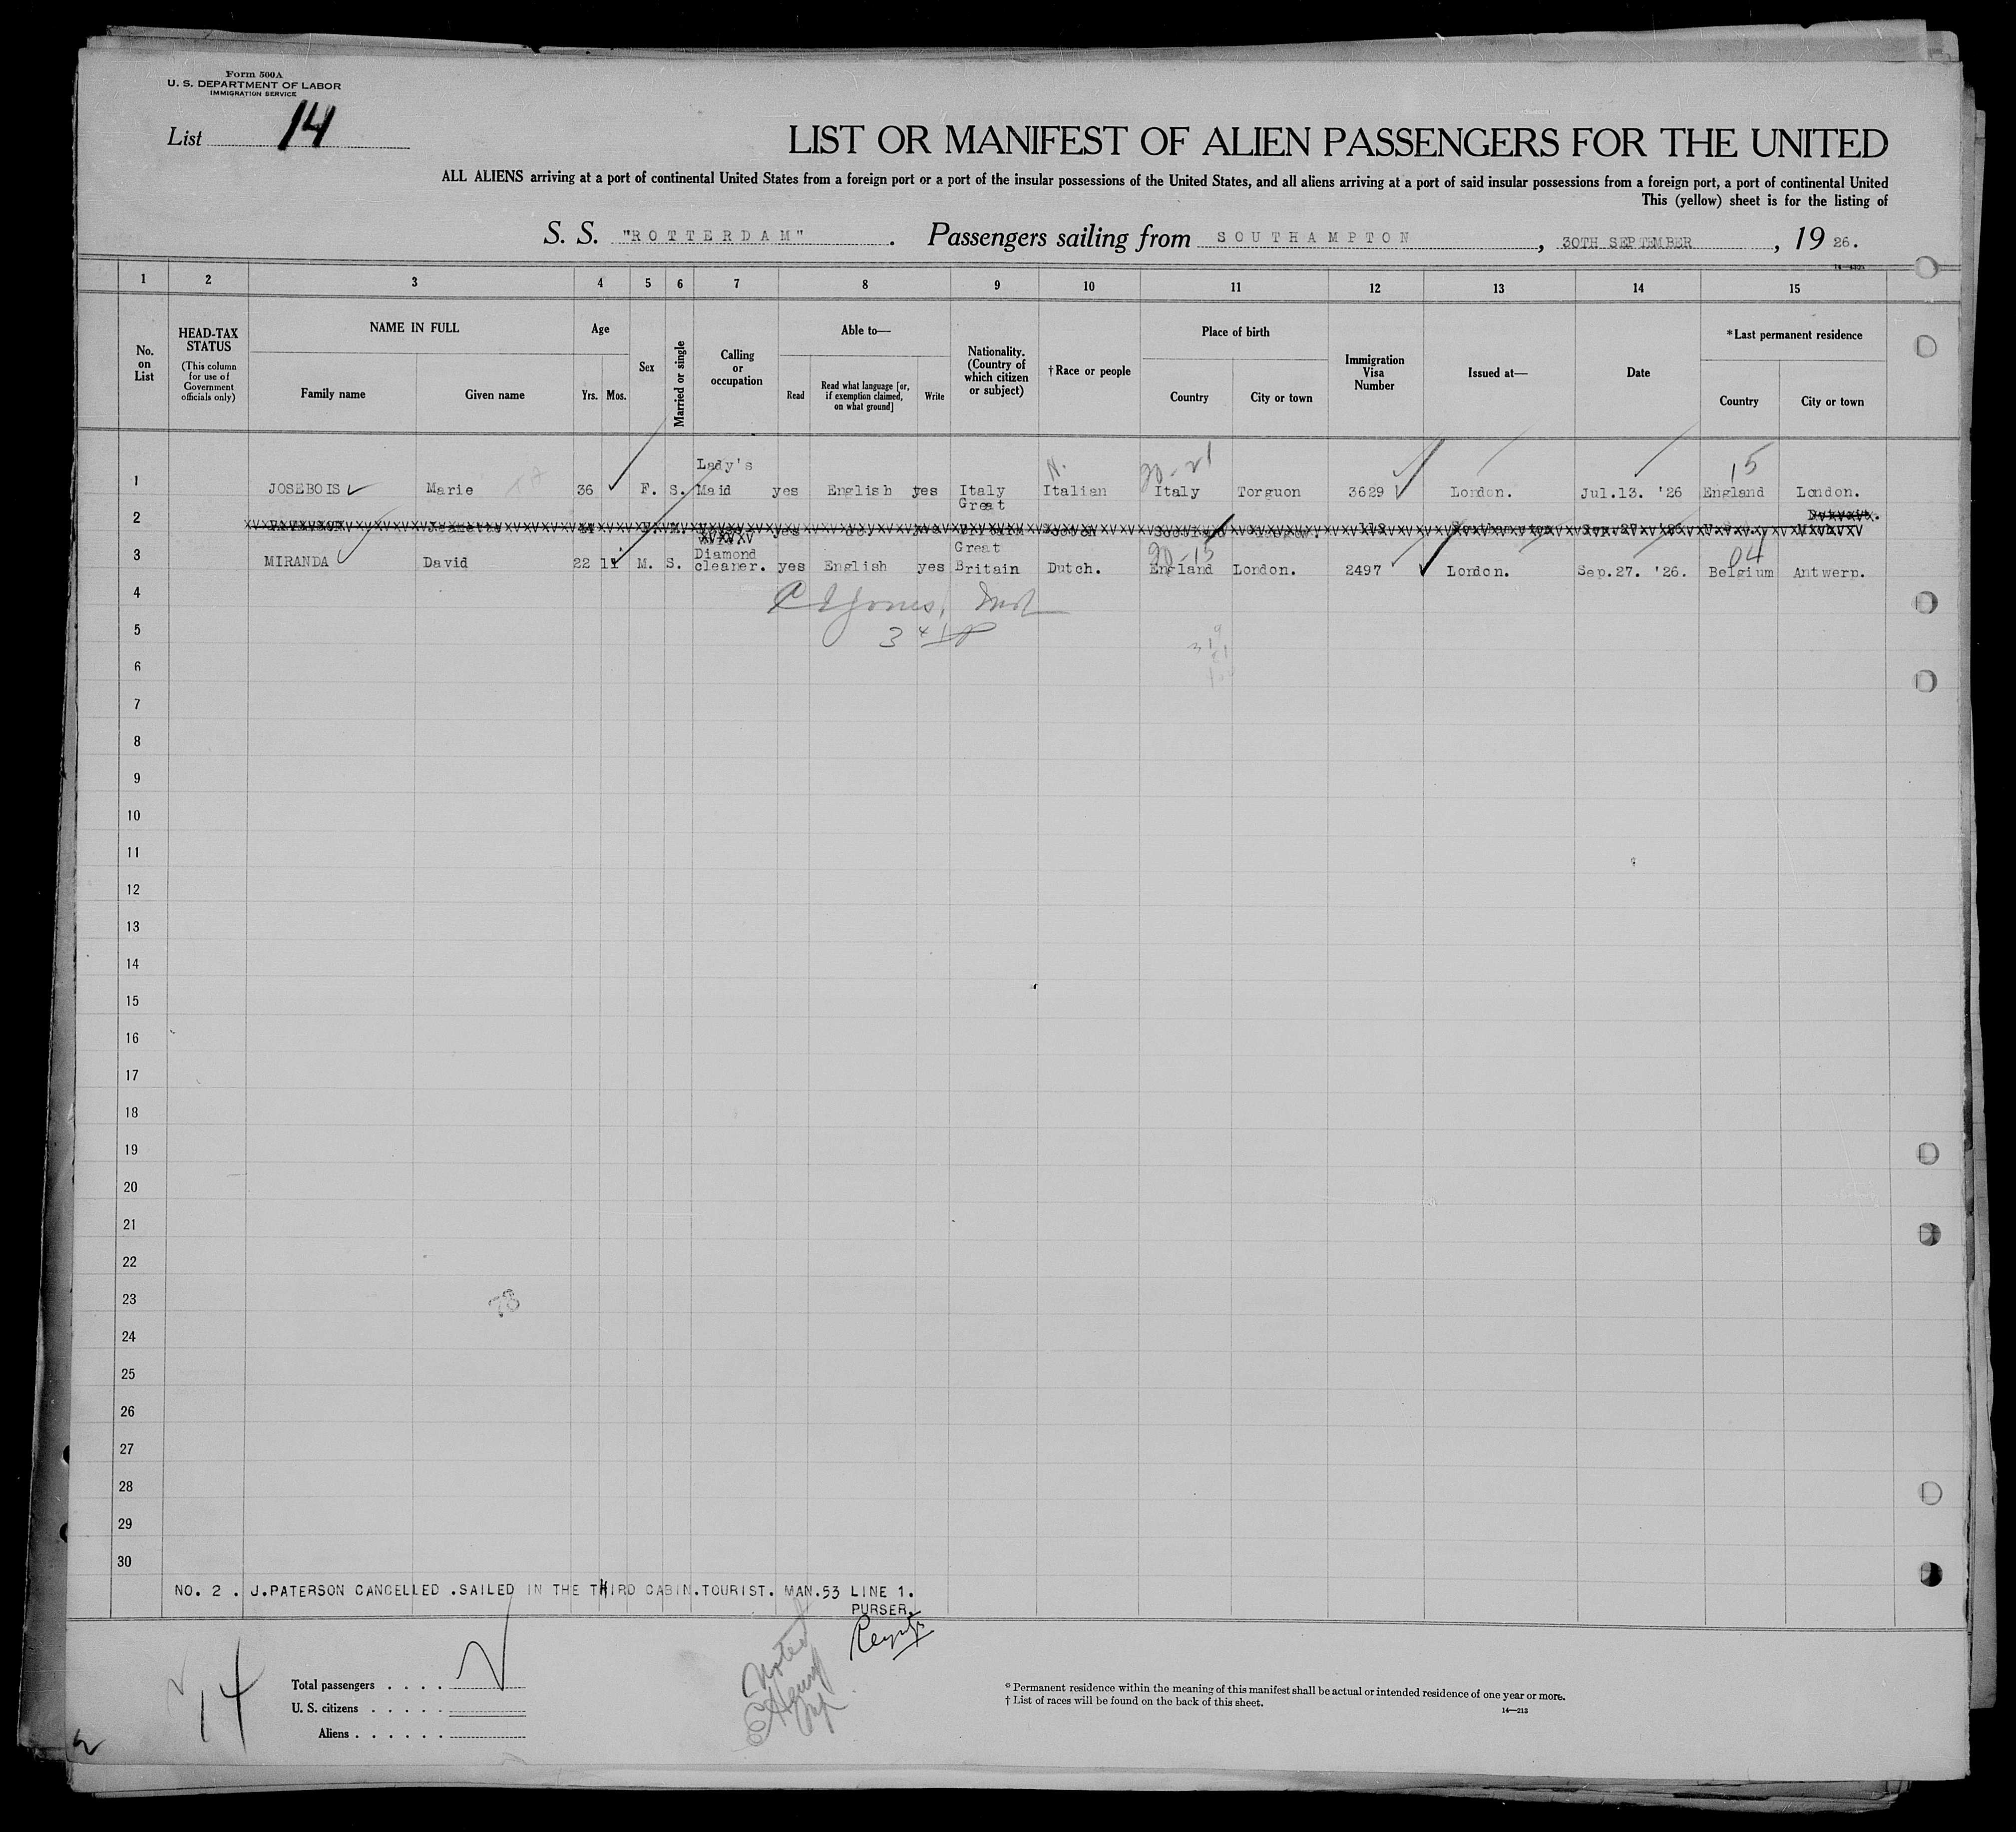 Form 500A
U. S. DEPARTMENT OF LABOR
IMMIGRATION SERVICE
List 14
LIST OR MANIFEST OF ALIEN PASSENGERS FOR THE UNITED
ALL ALIENS arriving at a port of continental United States from a foreign port or a port of the insular possessions of the United States, and all aliens arriving at a port of said insular possessions from a foreign port, a port of continental United
This (yellow) sheet is for the listing of
S. S. "ROTTERDAM". Passengers sailing from SOUTHAMPTON, 30TH SEPTEMBER, 19 26.
1 2 3 4 5 6 7 8 9 10 11 12 13 14 15
No. on List
HEAD-TAX STATUS (This column for use of Government officials only)
NAME IN FULL
Family name Given name
Age
Yrs. Mos.
Sex
Married or single
Calling or occupation
Able to—
Read
Read what language [or, if exemption claimed, on what ground]
Write
Nationality. (Country of which citizen or subject)
†Race or people
Place of birth
Country City or town
Immigration Visa Number
Issued at—
Date
*Last permanent residence
Country City or town
N. 20-21 15
1 JOSEBOIS Marie 36 F. S. Lady's Maid yes English yes Italy Italian Italy Torguon 3629 London. Jul.13. '26 England London.
2 Great
20-15 04
3 MIRANDA David 22 11 M. S. Diamond cleaner. yes English yes Great Britain Dutch. England London. 2497 London. Sep.27. '26. Belgium Antwerp.
4
5
6
7
8
9
10
11
12
13
14
15
16
17
18
19
20
21
22
23
24
25
26
27
28
29
30
NO. 2 . J.PATERSON CANCELLED .SAILED IN THE THIRD CABIN.TOURIST. MAN.53 LINE 1.
PURSER.
Noted
14
Total passengers
U. S. citizens
Aliens
* Permanent residence within the meaning of this manifest shall be actual or intended residence of one year or more.
† List of races will be found on the back of this sheet.
14—213